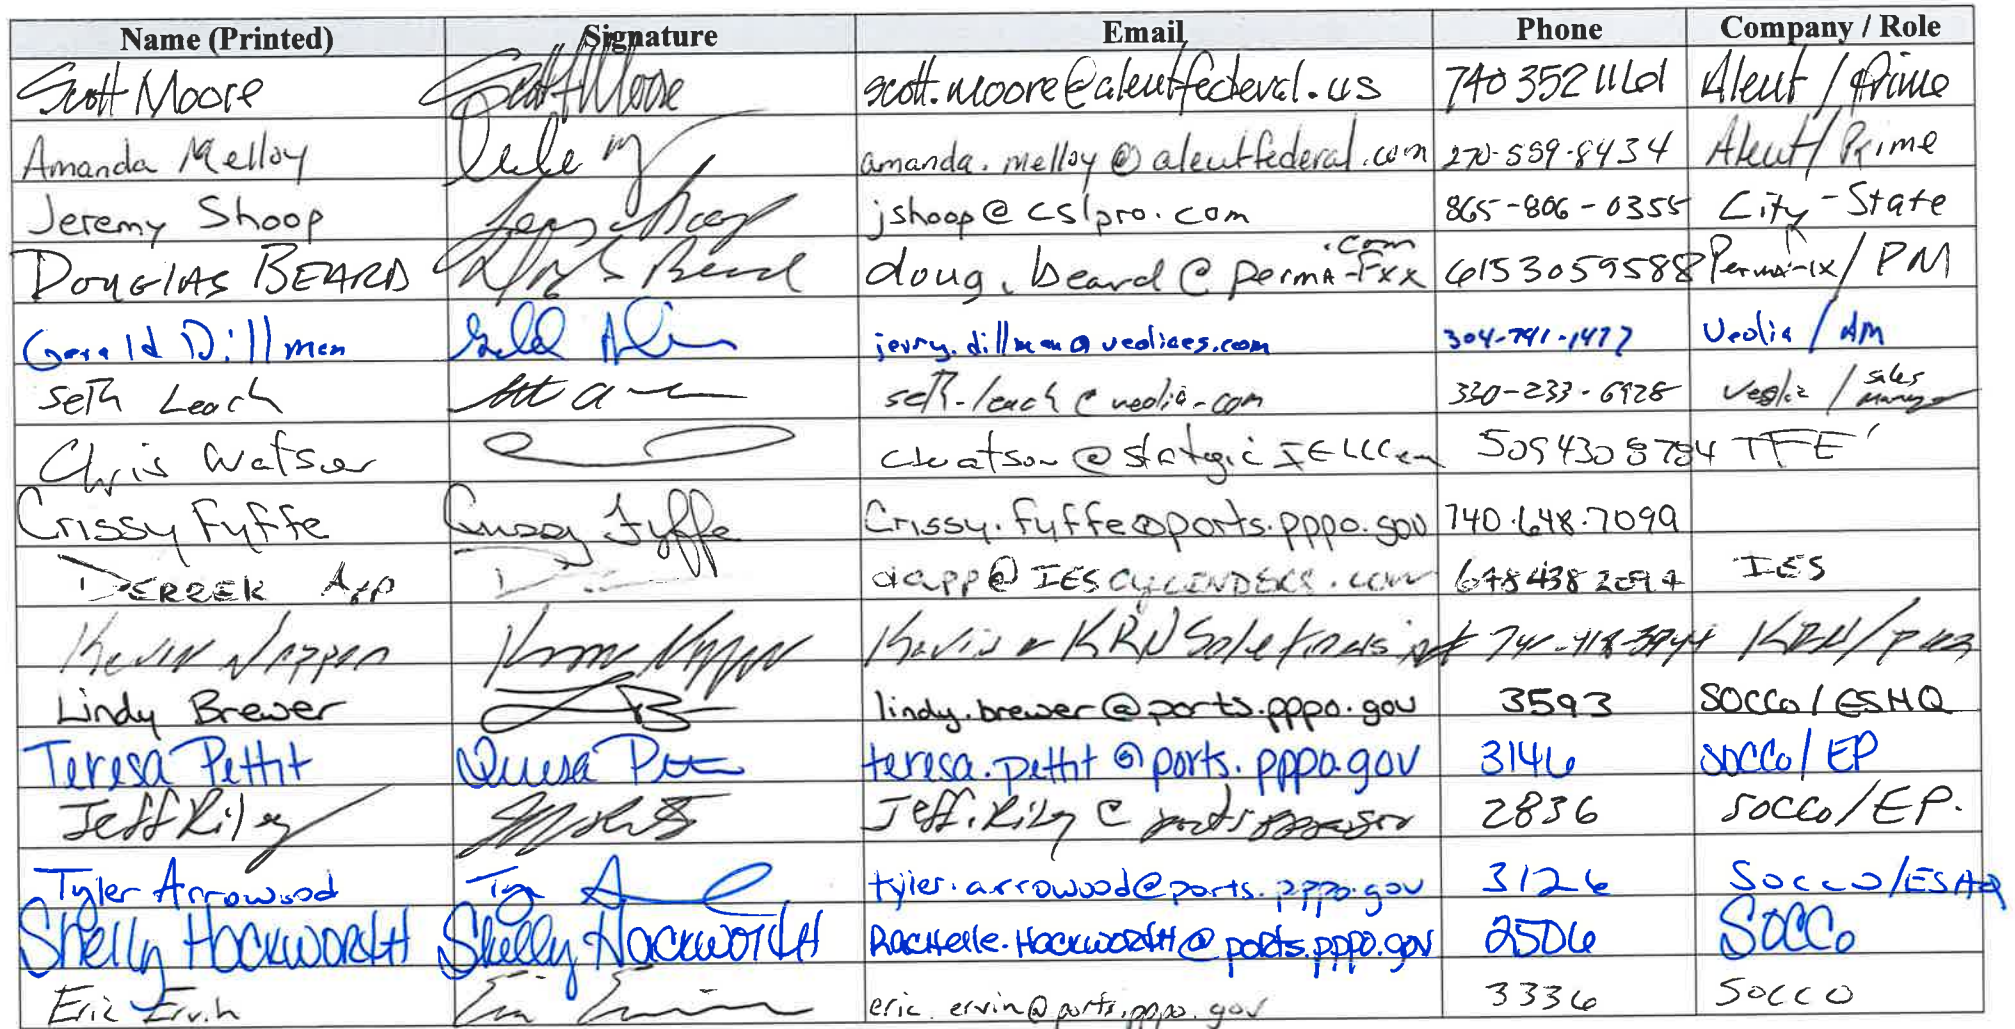 Name (Printed) Signature Email Phone Company / Role
Scott Moore Scott Moore scott.moore@aleutfederal.us 740 352 1161 Aleut / Prime
Amanda Melloy amanda.melloy@aleutfederal.com 270-559-8434 Aleut / Prime
Jeremy Shoop jshoop@cslpro.com 865-806-0355 City-State
.com
DOUGLAS BEARD doug.beard@perma-fix 6153059588 Perma-fix / PM
Gerald Dillman jerry.dillman@veoliaes.com 304-741-1477 Veolia / AM
Seth Leach seth.leach@veolia.com 330-233-6928 Veolia / Sales Manager
Chris Watson cwatson@ TFE
Crissy Fyffe Crissy Fyffe Crissy.fyffe@ports.pppo.gov 740.648.7099
DERREK App dapp@IESCYLINDERS.com IES
Kevin
Lindy Brewer LB lindy.brewer@ports.pppo.gov 3593 SOCCo / ESHQ
Teresa Pettit teresa.pettit@ports.pppo.gov 3146 SOCCo / EP
Jeff Riley Jeff.Riley@ 2836 SOCCo / EP.
Tyler Arrowood tyler.arrowood@ports.pppo.gov 3126 SOCCO/ESHQ
Shelly Hackworth Shelly Hackworth Rachelle.Hackworth@ports.pppo.gov 2506 SOCCo
Eric Ervin eric.ervin@ports.pppo.gov 3336 SOCCO